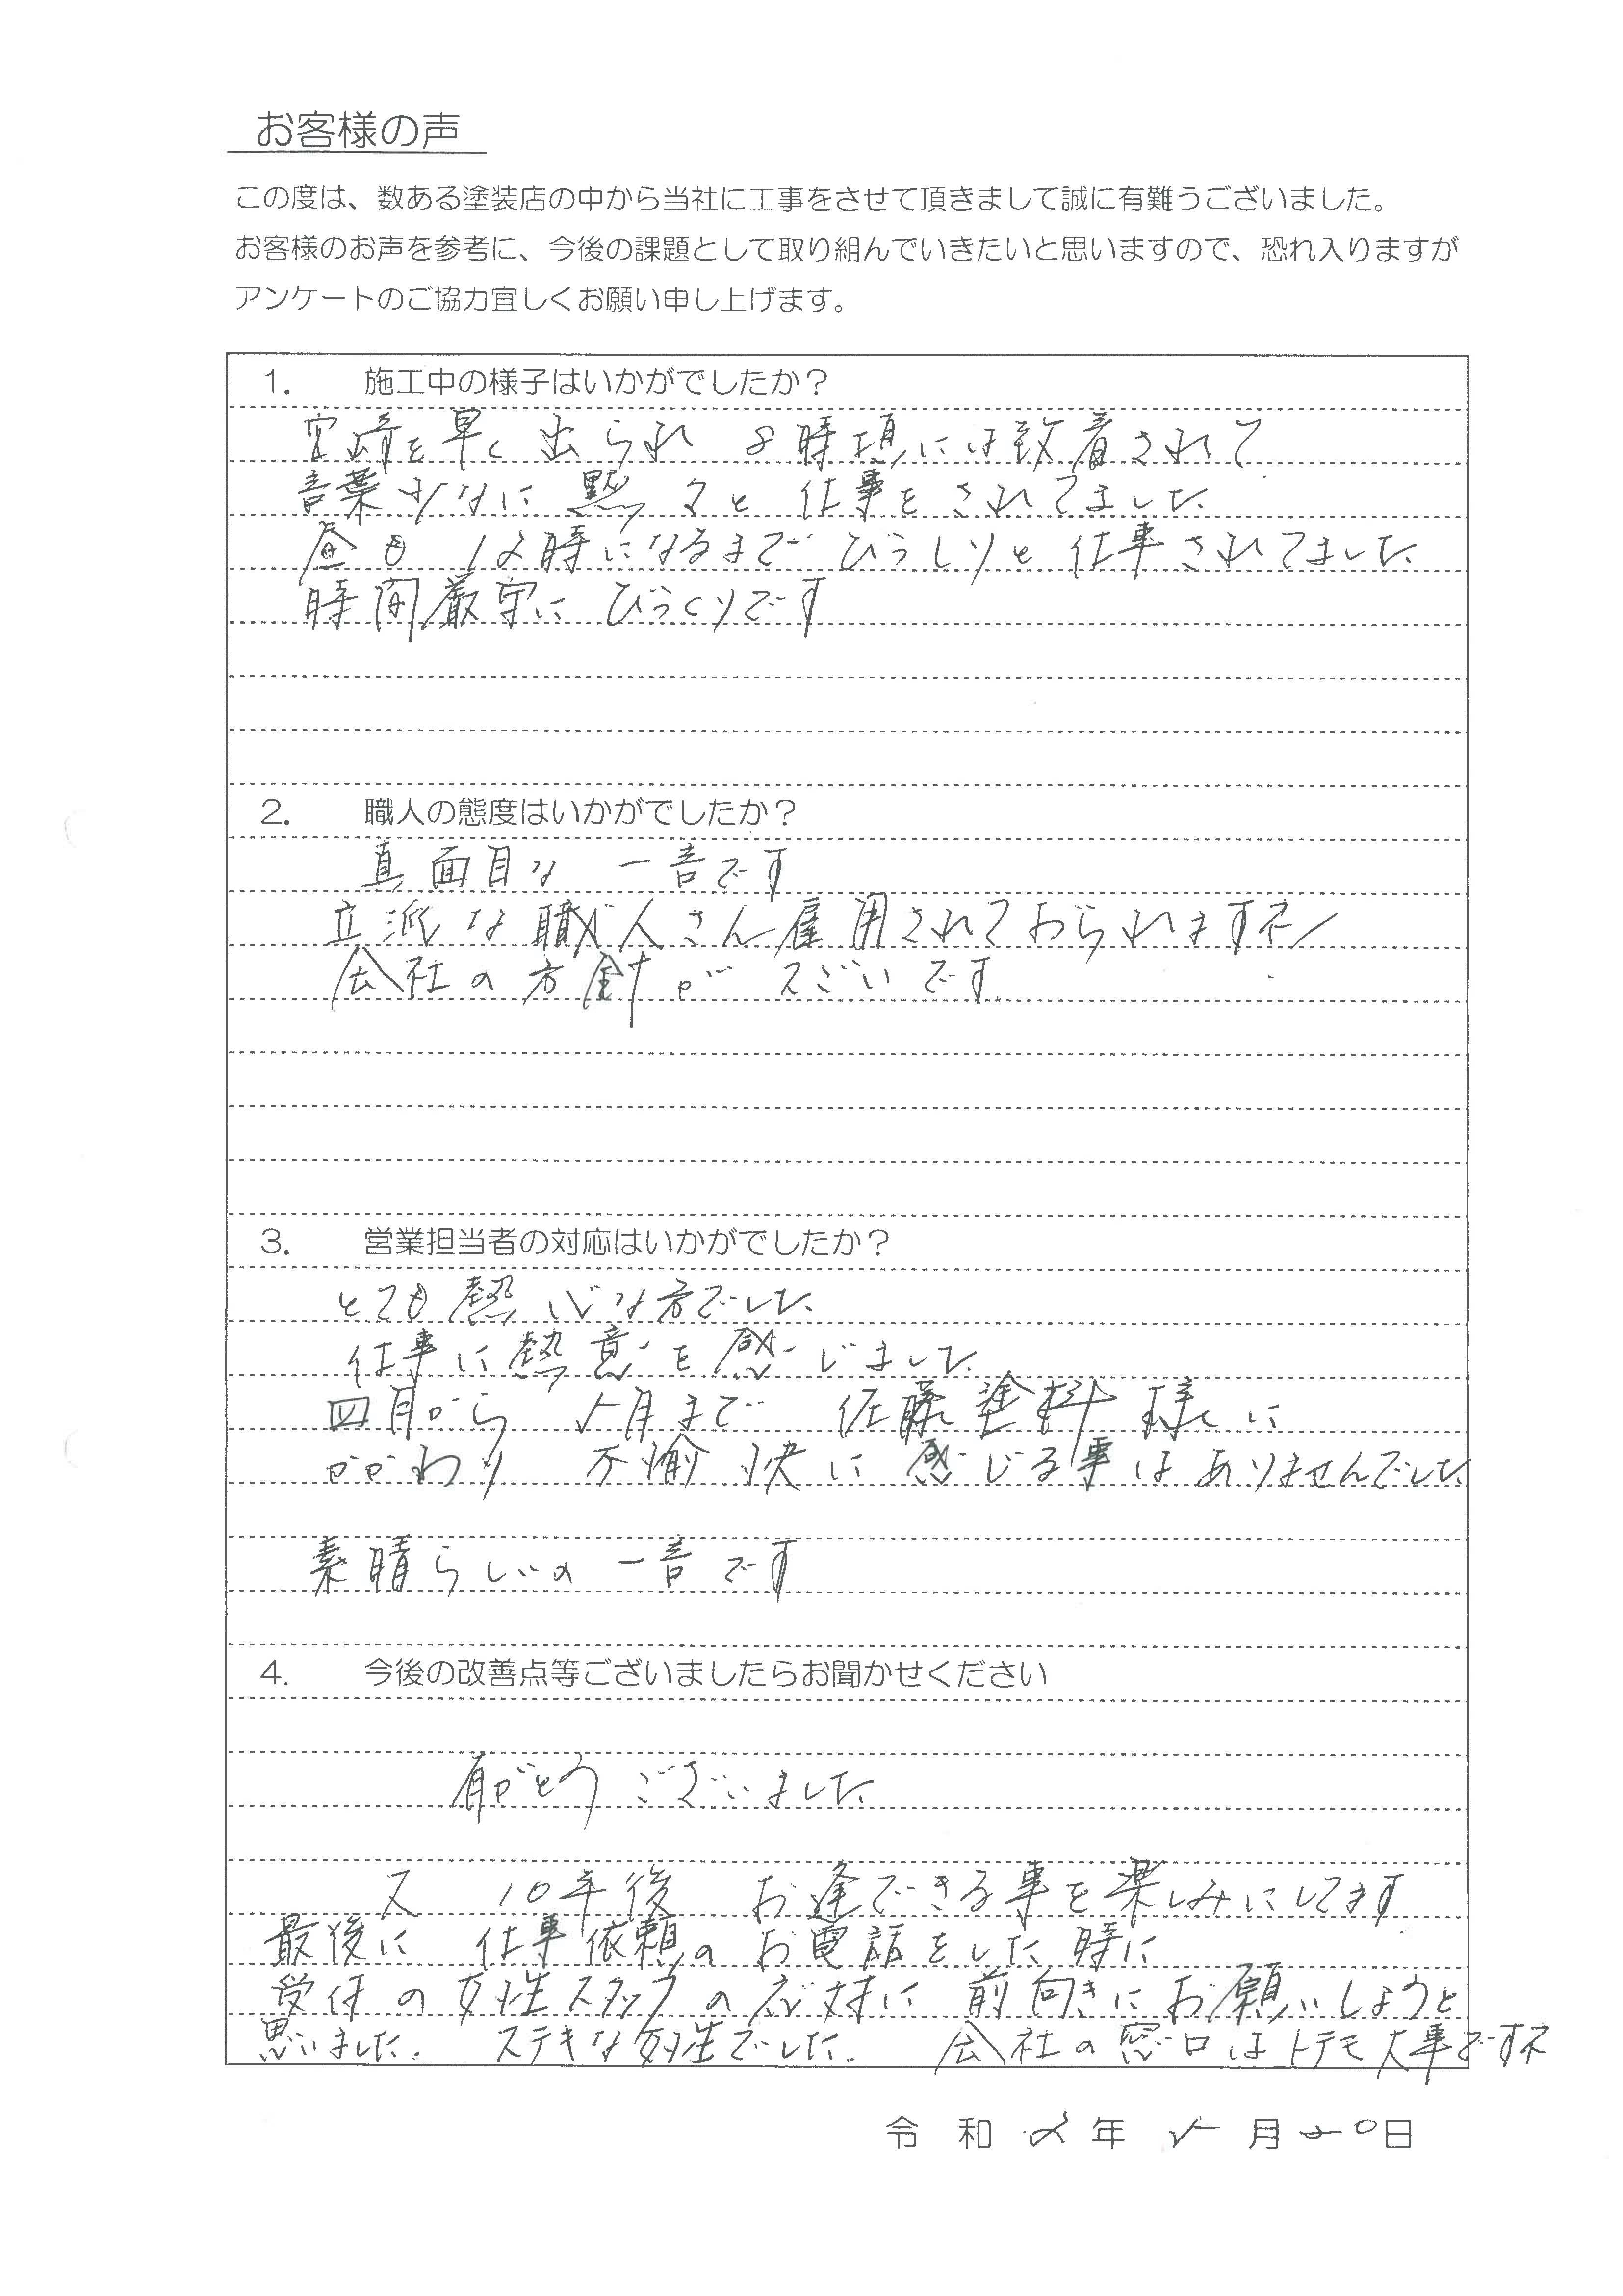 お客様の声
この度は、数ある塗装店の中から当社に工事をさせて頂きまして誠に有難うございました。
お客様のお声を参考に、今後の課題として取り組んでいきたいと思いますので、恐れ入りますが
アンケートのご協力宜しくお願い申し上げます。
1. 施工中の様子はいかがでしたか？
宮崎を早く出られ 8時頃には到着されて
言葉少なに 黙々と 仕事をされてました
昼も 12時になるまで びっしりと 仕事されてました
時間厳守に びっくりです
2. 職人の態度はいかがでしたか？
真面目な 一言です
立派な職人さん雇用されておられますネ
会社の方針が スごいです
3. 営業担当者の対応はいかがでしたか？
とても熱心な方でした
仕事に熱意を感じました
四月から 5月まで 佐藤塗料様に
かかわり 不愉快に感じる事はありませんでした
素晴らしいの一言です
4. 今後の改善点等ございましたらお聞かせください
有がとうございました
又 10年後 お逢できる事を楽しみにしてます
最後に 仕事依頼のお電話をした時に
受付の女性スタッフの応対に 前向きにお願いしようと
思いました. ステキな女性でした. 会社の窓口はトテモ大事ですネ
令和 2年 5月20日